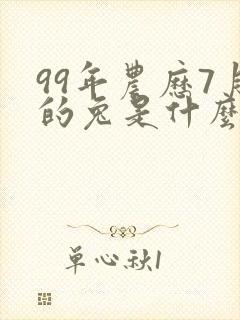 99年農歷7月
的兔是什麼
单心秋1